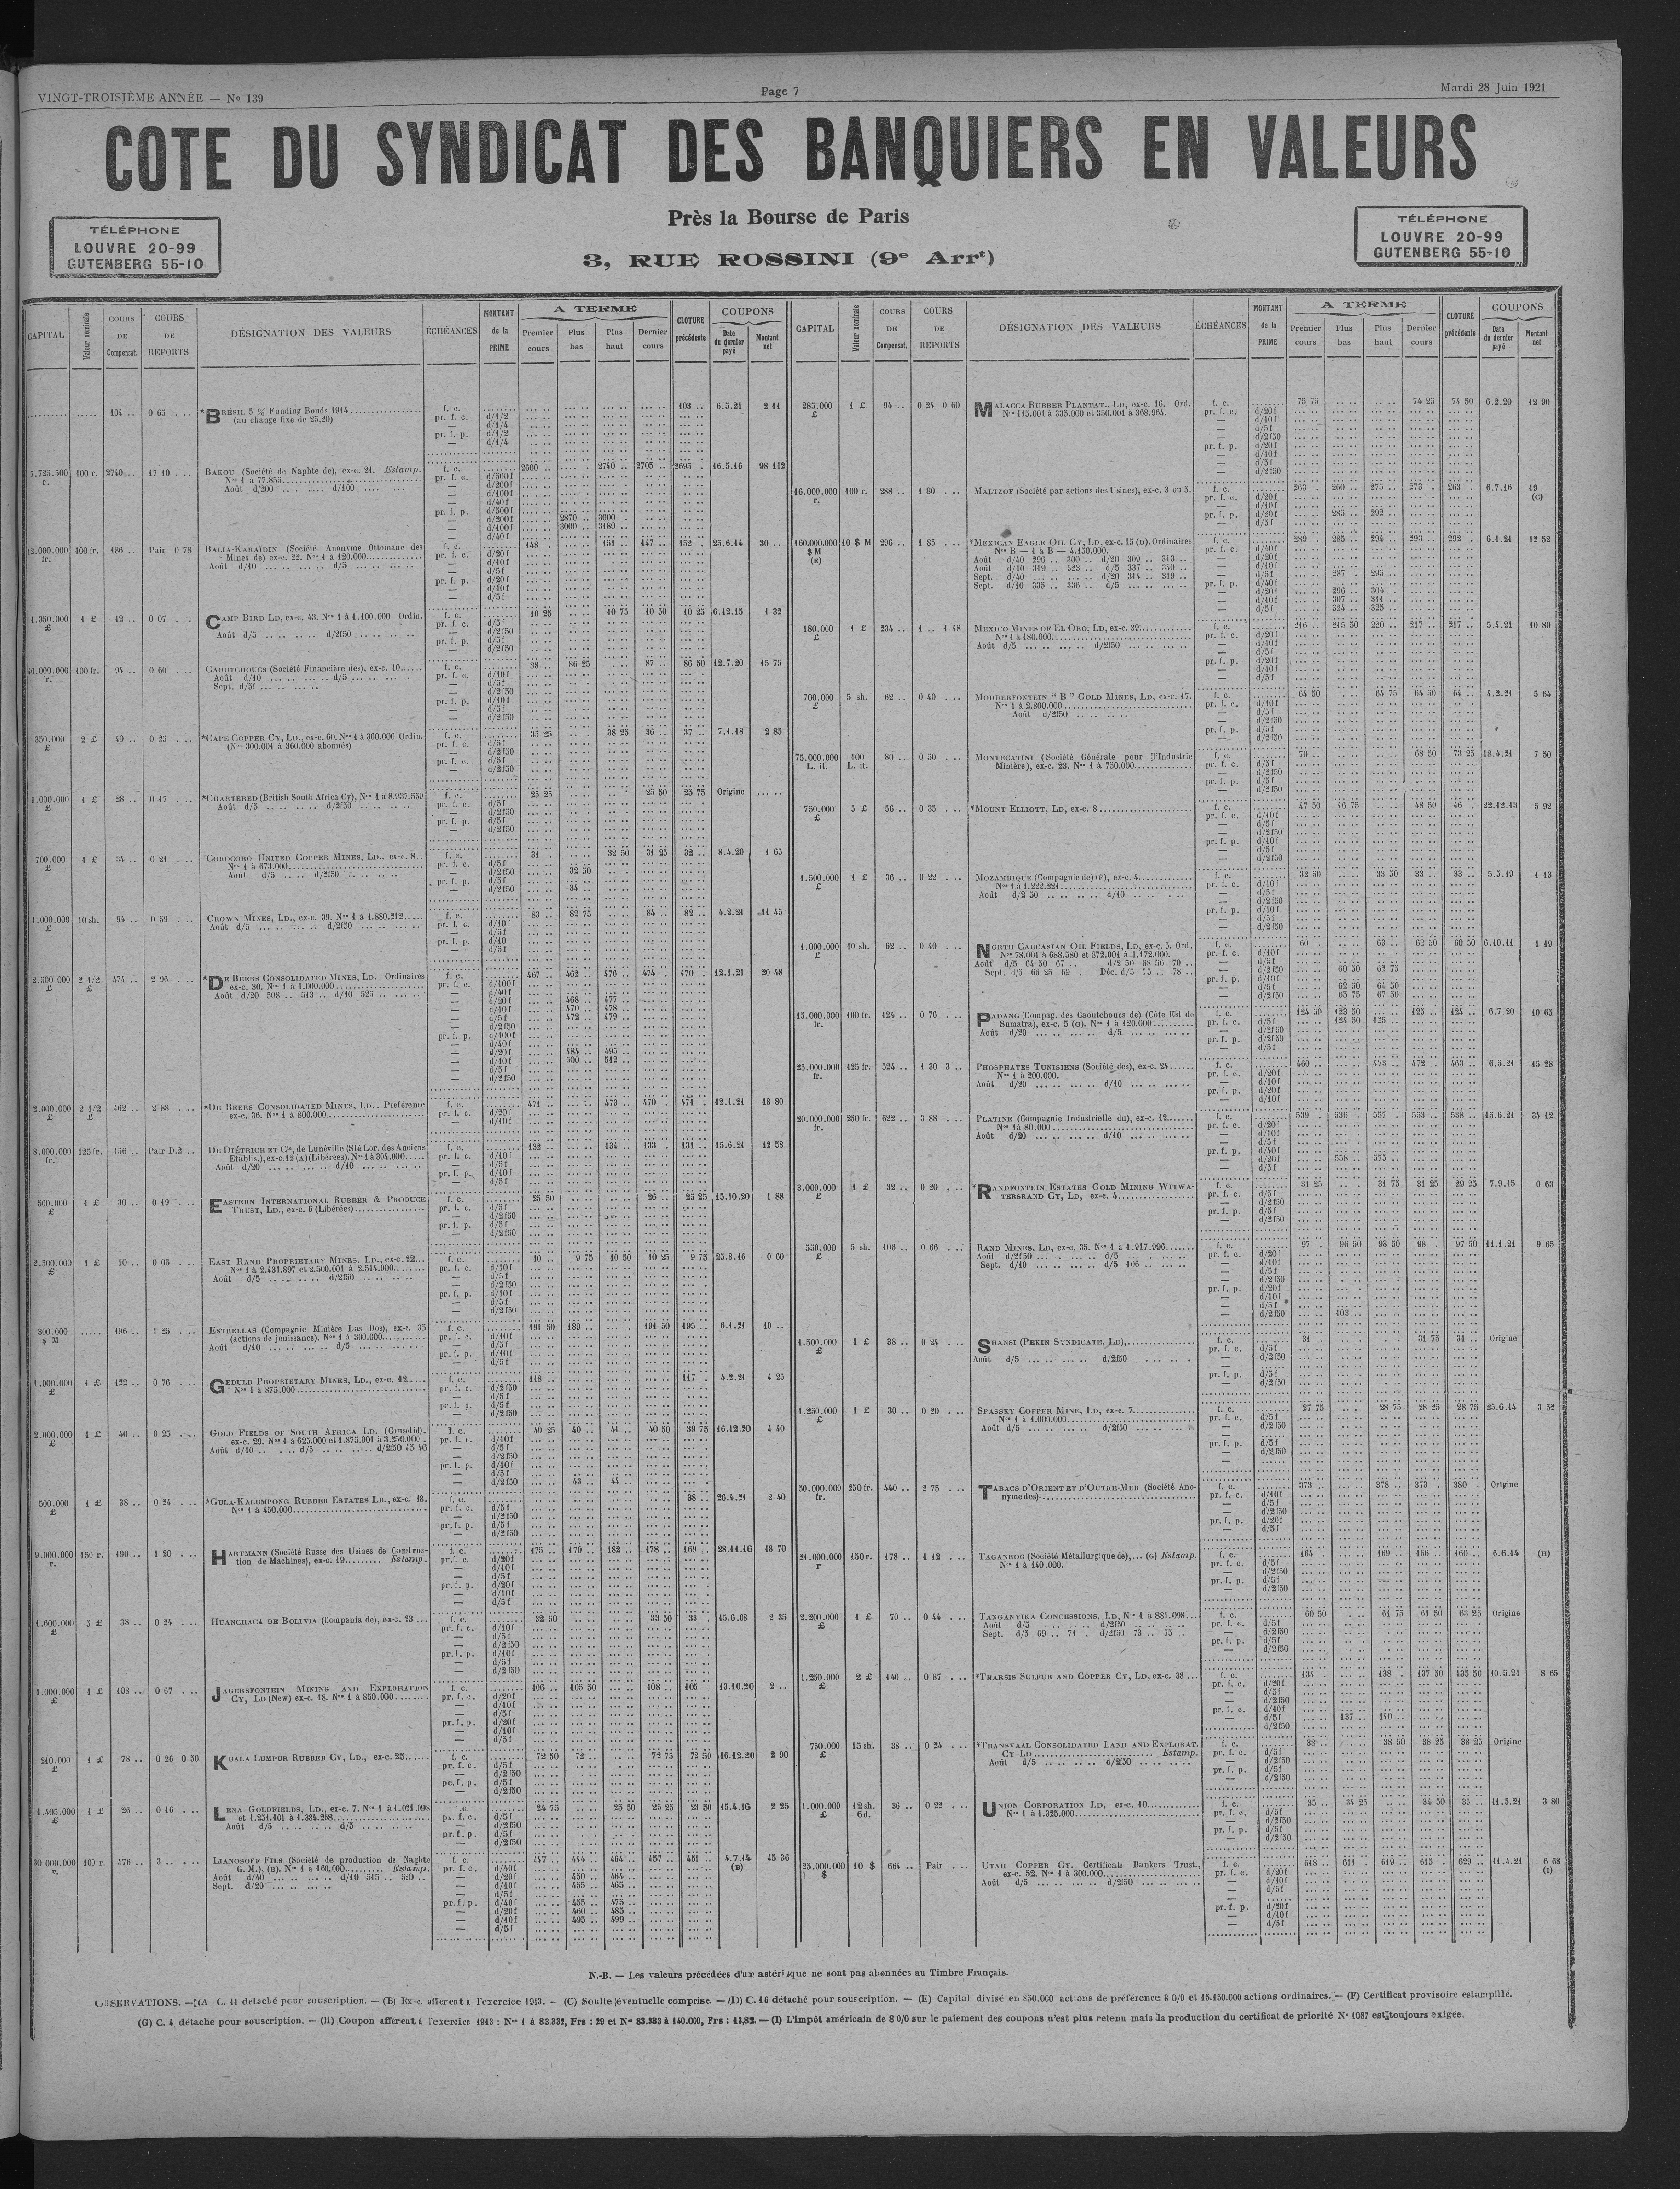 VINGT-TROISIÈME ANNÉE — No 139
Page 7
Mardi 28 Juin 1921
COTE DU SYNDICAT DES BANQUIERS EN VALEURS
Près la Bourse de Paris
3, RUE ROSSINI (9e Arrt)
TÉLÉPHONE
LOUVRE 20-99
GUTENBERG 55-10
TÉLÉPHONE
LOUVRE 20-99
GUTENBERG 55-10
CAPITAL Valeur nominale COURS DE Compensat. COURS DE REPORTS DÉSIGNATION DES VALEURS ÉCHÉANCES MONTANT de la PRIME A TERME Premier cours Plus bas Plus haut Dernier cours CLOTURE précédente COUPONS Date du dernier payé Montant net
104 .. 0 65 *BRÉSIL 5 % Funding Bonds 1914 f. c. 103 .. 6.5.21 2 11
(au change fixe de 25,20)
7.725.500 r. 100 r. 2740 .. 17 10 BAKOU (Société de Naphte de), ex-c. 21. Estamp. f. c. 2600 .. 2740 .. 2705 .. 2695 .. 16.5.16 98 112
Nos 1 à 77.855
Août d/200 d/100
pr. f. p. d/200f 2870 .. 3000
d/100f 3000 .. 3180 ..
12.000.000 fr. 100 fr. 186 .. Pair 0 78 BALIA-KARAÏDIN (Société Anonyme Ottomane des f. c. 148 .. 151 .. 147 .. 152 .. 25.6.14 30 ..
Mines de) ex-c. 22. Nos 1 à 120.000
Août d/10 d/5
1.350.000 £ 1 £ 12 .. 0 07 CAMP BIRD LD, ex-c. 43. Nos 1 à 1.100.000 Ordin. f. c. 10 25 10 75 10 50 10 25 6.12.15 1 32
Août d/5 d/2f50
40.000.000 fr. 100 fr. 94 .. 0 60 CAOUTCHOUCS (Société Financière des), ex-c. 10 f. c. 88 .. 86 25 87 .. 86 50 12.7.20 15 75
Août d/10 d/5
Sept. d/5f
350.000 £ 2 £ 40 .. 0 25 *CAPE COPPER CY, LD., ex-c. 60. Nos 1 à 360.000 Ordin. f. c. 35 25 38 25 36 .. 37 .. 7.1.18 2 85
(Nos 300.001 à 360.000 abonnés)
9.000.000 £ 1 £ 28 .. 0 17 *CHARTERED (British South Africa Cy), Nos 1 à 8.937.559 f. c. 25 25 25 50 25 75 Origine
Août d/5 d/2f50
700.000 £ 1 £ 34 .. 0 21 COROCORO UNITED COPPER MINES, LD., ex-c. 8 f. c. 31 . 32 50 31 25 32 .. 8.4.20 1 65
Nos 1 à 673.000
Août d/5 d/2f50
d/2f50 32 50
d/2f50 34 ..
1.000.000 £ 10 sh. 94 .. 0 59 CROWN MINES, LD., ex-c. 39. Nos 1 à 1.880.212 f. c. 83 .. 82 75 84 .. 82 .. 4.2.21 11 45
Août d/5 d/2f50
2.500 000 £ 2 1/2 £ 474 .. 2 96 *DE BEERS CONSOLIDATED MINES, LD. Ordinaires f. c. 467 .. 462 .. 476 .. 474 .. 470 .. 12.1.21 20 48
ex-c. 30. Nos 1 à 1.000.000
Août d/20 508 .. 513 .. d/10 525
d/20f 468 .. 477 ..
d/10f 470 .. 478 ..
d/5f 472 .. 479 ..
d/20f 484 .. 495 ..
d/10f 500 .. 512 ..
2.000.000 £ 2 1/2 £ 462 .. 2 88 *DE BEERS CONSOLIDATED MINES, LD.. Préférence f. c. 471 .. 473 .. 470 .. 471 . 12.1.21 18 80
ex-c. 36. Nos 1 à 800.000
8.000.000 fr. 125 fr. 156 .. Pair D.2 .. DE DIÉTRICH ET Cie, de Lunéville (Sté Lor. des Anciens f. c. 132 .. 134 .. 133 .. 131 .. 15.6.21 12 58
Établis.), ex-c. 12 (A) (Libérées). Nos 1 à 304.000
Août d/20 d/10
500.000 £ 1 £ 30 .. 0 19 EASTERN INTERNATIONAL RUBBER & PRODUCE f. c. 25 50 26 .. 25 25 15.10.20 1 88
TRUST, LD., ex-c. 6 (Libérées)
2.500.000 £ 1 £ 10 .. 0 06 EAST RAND PROPRIETARY MINES, LD., ex-c. 22 f. c. 10 .. 9 75 10 50 10 25 9 75 25.8.16 0 60
Nos 1 à 2.431.897 et 2.500.001 à 2.514.000
Août d/5 d/2f50
300.000 $ M 196 .. 1 25 ESTRELLAS (Compagnie Minière Las Dos), ex-c. 35 f. c. 191 50 189 .. 191 50 195 .. 6.1.21 10 ..
(actions de jouissance). Nos 1 à 300.000
Août d/10 d/5
1.000.000 £ 1 £ 122 .. 0 76 GEDULD PROPRIETARY MINES, LD., ex-c. 12 f. c. 118 .. 117 . 4.2.21 4 25
Nos 1 à 875.000
2.000.000 £ 1 £ 40 .. 0 25 GOLD FIELDS OF SOUTH AFRICA LD. (Consolid). f. c. 40 25 40 .. 41 .. 40 50 39 75 16.12.20 4 40
ex-c. 29. Nos 1 à 625.000 et 1.875.001 à 3.250.000
Août d/10 d/5 d/2f50 45 46
d/2f50 43 .. 44 ..
500.000 £ 1 £ 38 .. 0 24 *GULA-KALUMPONG RUBBER ESTATES LD., ex-c. 18. f. c. 38 .. 26.4.21 2 40
Nos 1 à 450.000
9.000.000 r. 150 r. 190 .. 1 20 HARTMANN (Société Russe des Usines de Construc- f. c. 175 .. 170 .. 182 .. 178 .. 169 .. 28.11.16 18 70
tion de Machines), ex-c. 19 Estamp.
1.600.000 £ 5 £ 38 .. 0 24 HUANCHACA DE BOLIVIA (Compania de), ex-c. 23 f. c. 32 50 33 50 33 .. 15.6.08 2 35
1.000.000 £ 1 £ 108 .. 0 67 JAGERSFONTEIN MINING AND EXPLORATION f. c. 106 .. 105 50 108 .. 105 .. 13.10.20 2 ..
CY, LD (New) ex-c. 18. Nos 1 à 850.000
210.000 £ 1 £ 78 .. 0 26 0 50 KUALA LUMPUR RUBBER CY, LD., ex-c. 25 f. c. 72 50 72 .. 72 75 72 50 16.12.20 2 90
1.405.000 £ 1 £ 26 .. 0 16 LENA GOLDFIELDS, LD., ex-c. 7. Nos 1 à 1.021.098 f. c. 24 75 25 50 25 25 23 50 15.4.16 2 25
et 1.251.101 à 1.384.268
Août d/5 d/5
30 000.000 r. 100 r. 476 .. 3 .. LIANOSOFF FILS (Société de production de Naphte f. c. 447 .. 444 .. 464 .. 457 .. 451 .. 4.7.14 (B) 45 36
G. M.), (B). Nos 1 à 160,000 Estamp.
Août d/40 d/10 515 .. 520 ..
Sept. d/20
d/20f 450 .. 464 ..
d/10f 455 .. 465 ..
d/40f 455 .. 475 ..
d/20f 460 .. 485 ..
d/10f 495 .. 499 ..
CAPITAL Valeur nominale COURS DE Compensat. COURS DE REPORTS DÉSIGNATION DES VALEURS ÉCHÉANCES MONTANT de la PRIME A TERME Premier cours Plus bas Plus haut Dernier cours CLOTURE précédente COUPONS Date du dernier payé Montant net
285.000 £ 1 £ 94 .. 0 24 0 60 MALACCA RUBBER PLANTAT., LD, ex-c. 16. Ord. f. c. 75 75 74 25 74 50 6.2.20 12 90
Nos 115.001 à 335.000 et 350.001 à 368.964.
16.000.000 r. 100 r. 288 .. 1 80 MALTZOF (Société par actions des Usines), ex-c. 3 ou 5. f. c. 263 .. 260 .. 275 .. 273 .. 263 .. 6.7.16 19 (C)
d/20f 285 .. 292
160.000.000 $ M (E) 10 $ M 296 .. 1 85 *MEXICAN EAGLE OIL CY, LD, ex-c. 15 (D). Ordinaires f. c. 289 .. 285 .. 294 .. 293 .. 292 .. 6.1.21 12 52
Nos B — 1 à B — 4.150.000.
Août d/40 296 .. 300 .. d/20 309 .. 313 ..
Août d/10 319 .. 323 .. d/5 337 .. 340 ..
Sept. d/40 d/20 314 .. 319 ..
Sept. d/10 335 .. 336 .. d/5
d/5f 287 . 295 ..
d/20f 296 .. 304 .
d/10f 307 .. 311 ..
d/5f 324 .. 325 ..
180.000 £ 1 £ 234 .. 1 .. 1 48 MEXICO MINES OF EL ORO, LD, ex-c. 39 f. c. 216 .. 215 50 220 .. 217 .. 217 .. 5.4.21 10 80
Nos 1 à 180.000
Août d/5 d/2f50
700.000 £ 5 sh. 62 .. 0 40 MODDERFONTEIN " B " GOLD MINES, LD, ex-c. 17. f. c. 64 50 64 75 64 50 64 .. 4.2.21 5 64
Nos 1 à 2.800.000
Août d/2f50
75.000.000 L. it. 100 L. it. 80 .. 0 50 MONTECATINI (Société Générale pour l'Industrie f. c. 70 .. 68 50 73 25 18.4.21 7 50
Minière), ex-c. 23. Nos 1 à 750.000
750.000 £ 5 £ 56 .. 0 35 *MOUNT ELLIOTT, LD, ex-c. 8 f. c. 47 50 46 75 48 50 46 .. 22.12.13 5 92
1.500.000 £ 1 £ 36 .. 0 22 MOZAMBIQUE (Compagnie de) (F), ex-c. 4 f. c. 32 50 33 50 33 .. 33 .. 5.5.19 1 13
Nos 1 à 1.222.221
Août d/2 50 d/10
1.000.000 £ 10 sh. 62 .. 0 40 NORTH CAUCASIAN OIL FIELDS, LD, ex-c. 5. Ord. f. c. 60 . 63 .. 62 50 60 50 6.10.11 1 19
Nos 78.001 à 688.580 et 872.001 à 1.172.000.
Août d/5 64 50 67 .. d/2 50 68 50 70 ..
Sept. d/5 66 25 69 . Déc. d/5 75 .. 78 ..
d/2f50 60 50 62 75
d/5f 62 50 64 50
d/2f50 65 75 67 50
15.000.000 fr. 100 fr. 124 .. 0 76 PADANG (Compag. des Caoutchoucs de) (Côte Est de f. c. 124 50 123 50 125 .. 124 .. 6.7 20 10 65
Sumatra), ex-c. 5 (G). Nos 1 à 120.000 d/5f 124 50 125 ..
Août d/20 d/5
25.000.000 fr. 125 fr. 524 .. 1 30 3 .. PHOSPHATES TUNISIENS (Société des), ex-c. 24 f. c. 460 .. 473 .. 472 .. 463 .. 6.5.21 15 28
Nos 1 à 200.000.
Août d/20 d/10
20.000.000 fr. 250 fr. 622 .. 3 88 PLATINE (Compagnie Industrielle du), ex-c. 12 f. c. 539 .. 536 .. 557 .. 553 .. 538 .. 15.6.21 34 12
Nos 1 à 80.000
Août d/20 d/10
d/20f 558 .. 575 ..
3.000.000 £ 1 £ 32 .. 0 20 *RANDFONTEIN ESTATES GOLD MINING WITWA- f. c. 31 25 31 75 31 25 29 25 7.9.15 0 63
TERSRAND CY, LD, ex-c. 4
550.000 £ 5 sh. 106 .. 0 66 RAND MINES, LD, ex-c. 35. Nos 1 à 1.917.996 f. c. 97 .. 96 50 98 50 98 . 97 50 11.1.21 9 65
Août d/2f50 d/5
Sept. d/10 d/5 106
d/2f50 103 ..
1.500.000 £ 1 £ 38 .. 0 24 SHANSI (PEKIN SYNDICATE, LD), f. c. 31 31 75 31 .. Origine
Août d/5 d/2f50
1.250.000 £ 1 £ 30 .. 0 20 SPASSKY COPPER MINE, LD, ex-c. 7 f. c. 27 75 28 75 28 25 28 75 25.6.14 3 52
Nos 1 à 1.000.000
Août d/5 d/2f50
50.000.000 fr. 250 fr. 440 .. 2 75 TABACS D'ORIENT ET D'OUTRE-MER (Société Ano- f. c. 373 .. 378 .. 373 . 380 . Origine
nyme des)
21.000.000 r 150 r. 178 .. 1 12 TAGANROG (Société Métallurgique de),... (G) Estamp. f. c. 164 169 .. 166 .. 160 .. 6.6.14 (H)
Nos 1 à 140.000.
2.200.000 £ 1 £ 70 .. 0 44 TANGANYIKA CONCESSIONS, LD, Nos 1 à 881.098 f. c. 60 50 61 75 61 50 63 25 Origine
Août d/5 d/2f50
Sept. d/5 69 .. 71 . d/2f50 73 .. 75 .
1.250.000 £ 2 £ 140 .. 0 87 *THARSIS SULFUR AND COPPER CY, LD, ex-c. 38 f. c. 134 .. 138 .. 137 50 135 50 10.5.21 8 65
d/5f 137 .. 140 ..
750.000 £ 15 sh. 38 .. 0 24 *TRANSVAAL CONSOLIDATED LAND AND EXPLORAT. f. c. 38 38 50 38 25 38 25 Origine
CY LD Estamp.
Août d/5 d/2f50
1.000.000 £ 12 sh. 6 d. 36 .. 0 22 UNION CORPORATION LD, ex-c. 10 f. c. 35 .. 34 25 34 50 35 .. 11.5.21 3 80
Nos 1 à 1.325.000
25.000.000 $ 10 $ 664 .. Pair UTAH COPPER CY. Certificats Bankers Trust., f. c. 618 .. 611 . 619 .. 615 .. 629 .. 11.4.21 6 68 (I)
ex-c. 52. Nos 1 à 300.000
Août d/5 d/2f50
N.-B. — Les valeurs précédées d'un astérisque ne sont pas abonnées au Timbre Français.
OBSERVATIONS. — (A C. 11 détaché pour souscription. — (B) Ex-c. afférent à l'exercice 1913. — (C) Soulte éventuelle comprise. — (D) C. 16 détaché pour souscription. — (E) Capital divisé en 850.000 actions de préférence 8 0/0 et 15.150.000 actions ordinaires. — (F) Certificat provisoire estampillé.
(G) C. 4 détaché pour souscription. — (H) Coupon afférent à l'exercice 1913 : Nos 1 à 83.332, Frs : 29 et Nos 83.333 à 140.000, Frs : 13,82. — (I) L'impôt américain de 8 0/0 sur le paiement des coupons n'est plus retenu mais la production du certificat de priorité No 1087 est toujours exigée.